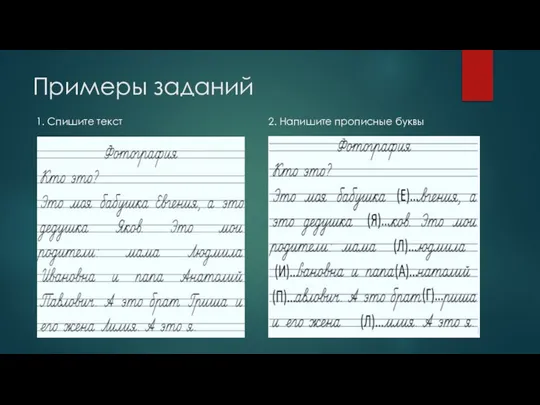 Примеры заданий
1. Спишите текст
Фотография
Кто это?
Это моя бабушка Евгения, а это
дедушка Яков. Это мои
родители: мама Людмила
Ивановна и папа Анатолий
Павлович. А это брат Гриша и
его жена Лилия. А это я.
2. Напишите прописные буквы
Фотография
Кто это?
Это моя бабушка (Е)...вгения, а
это дедушка (Я)...ков. Это мои
родители мама (Л)...юдмила
(И)...вановна и папа(А)...натолий
(П)...авлович. А это брат(Г)...риша
и его жена (Л)...илия. А это я.